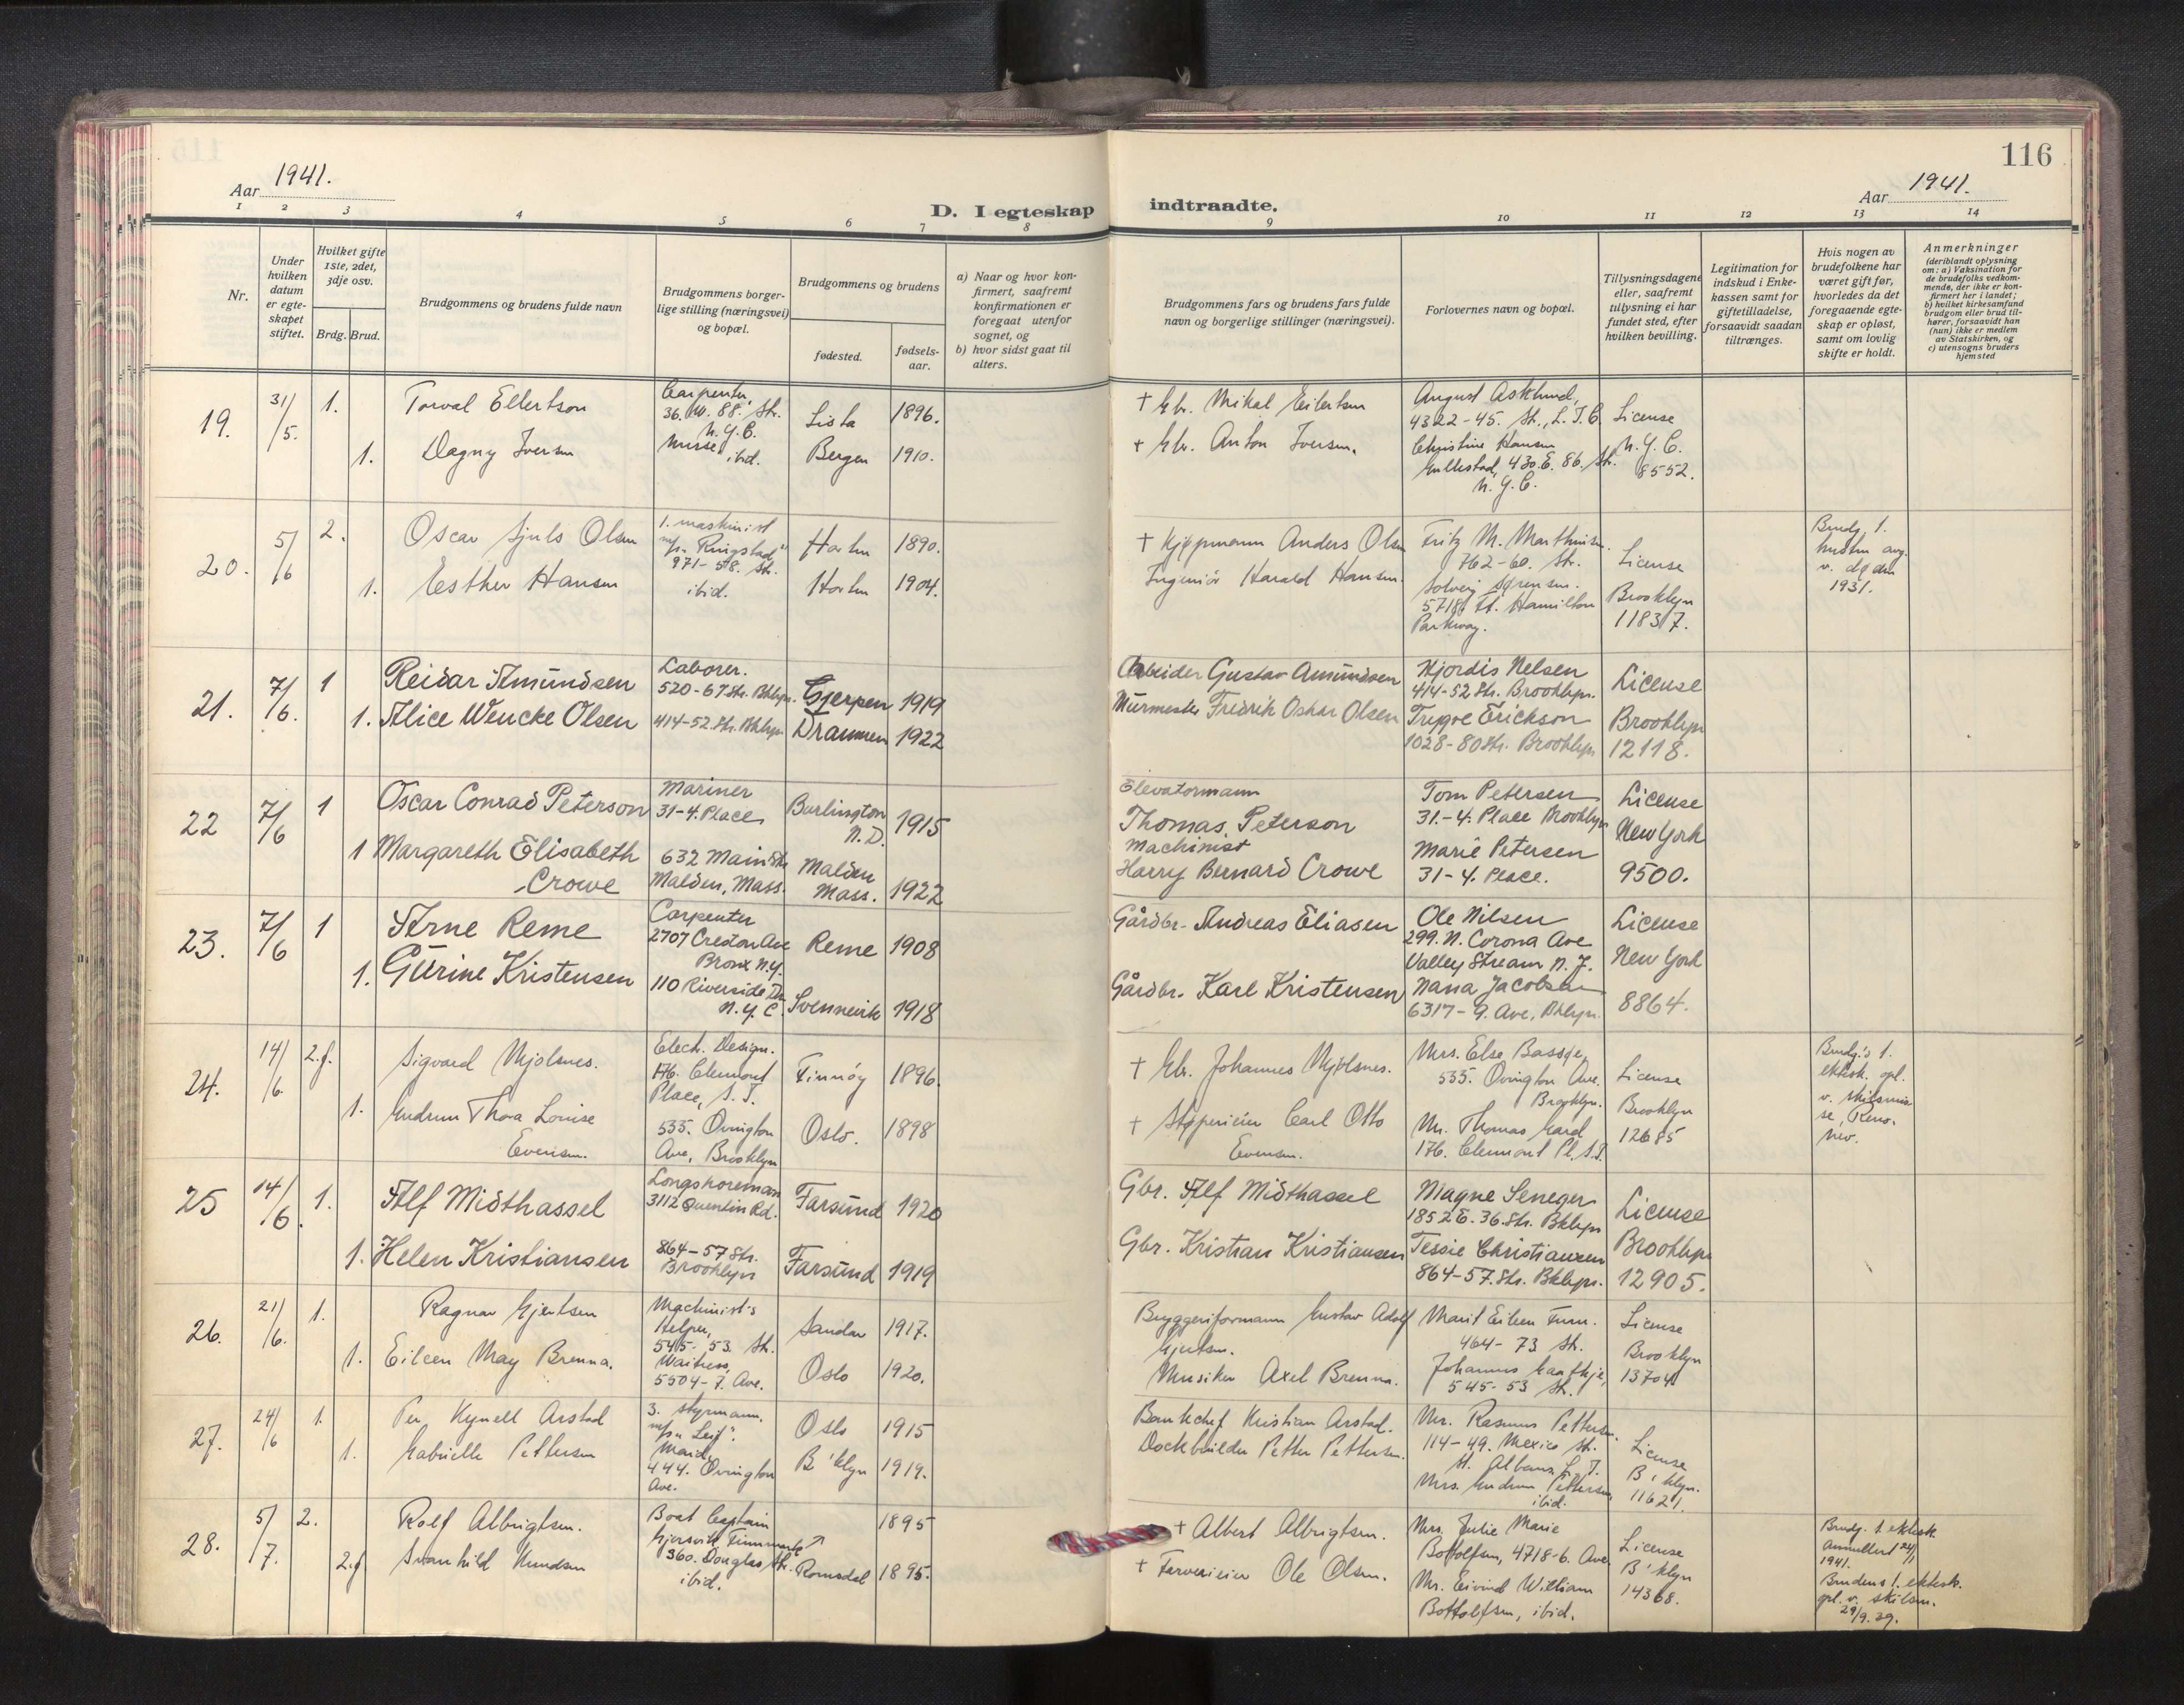 115
Aar 1941.
D. I egteskap
indtraadte.
Aar 1941.
116
1 2 3 4 5 6 7 8 9 10 11 12 13 14
Nr.
Under hvilken datum er egte-skapet stiftet.
Hvilket gifte 1ste, 2det, 3dje osv.
Brdg. Brud.
Brudgommens og brudens fulde navn
Brudgommens borger-
lige stilling (næringsvei)
og bopæl.
Brudgommens og brudens
fødested.
fødsels-
aar.
a) Naar og hvor kon-
firmert, saafremt
konfirmationen er
foregaat utenfor
sognet, og
b) hvor sidst gaat til
alters.
Brudgommens fars og brudens fars fulde
navn og borgerlige stillinger (næringsvei).
Forlovernes navn og bopæl.
Tillysningsdagene
eller, saafremt
tillysning ei har
fundet sted, efter
hvilken bevilling.
Legitimation for
indskud i Enke-
kassen samt for
giftetilladelse,
forsaavidt saadan
tiltrænges.
Hvis nogen av
brudefolkene har
været gift før,
hvorledes da det
foregaaende egte-
skap er opløst,
samt om lovlig
skifte er holdt.
Anmerkninger
(deriblandt oplysning
om: a) Vaksination for
de brudefolks vedkom-
mende, der ikke er kon-
firmert her i landet;
b) hvilket kirkesamfund
brudgom eller brud til-
hører, forsaavidt han
(hun) ikke er medlem
av Statskirken, og
c) utensogns bruders
hjemsted
19. 31/5. 1. Torval Ellertson
Carpenter,
36. W. 88. Str.
N.Y.C.
Lista 1896.
† Gbr. Mikal Eilertsen
August Asklund,
4322-45. St., L.I.C.
License
1. Dagny Iversen
Nurse, ibid.
Bergen 1910.
† Gbr. Anton Iversen.
Christine Hansen
Gullestad, 430. E. 86. Str.
N.Y.C.
N.Y.C.
8552.
20. 5/6 2. Oscar Sjuls Olsen
1. maskinist
m/s "Ringstad"
971-58. Str.
Horten 1890.
† Kjøpmann Anders Olsen
Fritz M. Marthinsen.
762-60. Str.
License
Brudg. 1.
hustru avg.
v. døden
1931.
1. Esther Hansen
ibid.
Horten 1904.
Ingeniør Harald Hansen.
Solveig Sørensen.
5718 Ft. Hamilton
Parkway.
Brooklyn
11837.
21. 7/6. 1 Reidar Amundsen
Laborer.
520-67 Str. Bklyn.
Gjerpen 1919
Arbeider Gustav Amundsen
Hjordis Nelsen
414-52 Str. Brooklyn.
License
1. Alice Wencke Olsen
414-52. Str. Bklyn
Drammen 1922
Murmester Fredrik Oskar Olsen
Trygve Erickson
1028-80 Str. Brooklyn
Brooklyn
12118.
22 7/6 1 Oscar Conrad Peterson
Mariner
31-4. Place
Burlington
N.D.
1915
Elevatormann
Thomas Peterson
Tom Petersen
31.-4. Place Brooklyn
License
New York
1 Margareth Elisabeth
Crowe
632 Main Str.
Malden, Mass.
Malden
Mass.
1922
Machinist
Harry Bernard Crowe
Marie Petersen
31-4. Place.
9500.
23. 7/6 1 Arne Reme
Carpenter
2707 Creston Ave
Bronx N.Y.
Reme 1908
Gårdbr. Andreas Eliasen
Ole Nilsen
299. N. Corona Ave
Valley Stream N.J.
License
New York
1. Gurine Kristensen
110 Riverside Dr.
N.Y.C.
Svennevik 1918
Gårdbr. Karl Kristensen
Nana Jacobsen
6317-9. Ave, Bklyn.
8864.
24. 14/6. 2.f. Sigvard Mjolsnes.
Elect. Design.
176. Clermont
Place, S.I.
Finnøy 1896.
† Gbr. Johannes Mjølsnes.
Mrs. Else Bassøe,
535. Ovington Ave.
Brooklyn.
License
Brudg.s 1.
ektesk. opl.
v. skilsmis
se, Reno.
Nev.
1. Gudrun Thora Louise
Evensen.
535. Ovington
Ave, Brooklyn
Oslo. 1898
† Støperieier Carl Otto
Evensen.
Mr. Thomas Gard
176. Clermont Pl. S.I.
Brooklyn
12685
25 14/6. 1. Alf Midthassel
Longshoreman
3112 Quentin Rd.
Farsund 1920
Gbr. Alf Midthassel
Magne Seneger
1852 E. 36. Str. Bklyn
License
1. Helen Kristiansen
864-57 Str.
Brooklyn
Farsund 1919
Gbr. Kristian Kristiansen
Tessie Christiansen
864-57. Str. Bklyn.
Brooklyn
12905.
26. 21/6. 1. Ragnar Gjertsen
Machinist's
Helper,
545-53. St.
Sandar 1917.
Bryggeriformann Gustav Adolf
Gjertsen.
Marit Eileen Furu.
464-73 St.
License
1. Eileen May Brenna.
Waitress,
5504-7. Ave.
Oslo 1920.
Musiker Axel Brenna.
Johannes
545-53 St.
Brooklyn
13704
27. 24/6 1. Per Kynell Arstad
3. styrmann,
m/s "Leif".
Oslo 1915
Bankchef Kristian Arstad.
Mr. Rasmus Pettersen.
114-49. Mexico St.
St. Albans, L.I.
License
1. Gabrielle Pettersen
Maid,
444. Ovington
Ave.
B'klyn 1919.
Dockbuilder Petter Pettersen.
Mrs. Gudrun Pettersen,
ibid.
B'klyn.
11621.
28. 5/7. 2. Rolf Albrigtsen.
Boat Captain
Gjersvik Finnmark
360. Douglas Str.
1895
† Albert Albrigtsen.
Mrs. Julie Marie
Bottolfsen, 4718-6. Ave
License
Brudg. 1. ektesk.
Annullert 24/1
1941.
2.f Svanhild Knudsen
ibid.
Romsdal 1895.
† Farverieier Ole Olsen.
Mr. Eivind William
Bottolfsen, ibid.
B'klyn
14368.
Brudens 1. ektesk.
opl. v. skilsm.
29/9. 29.